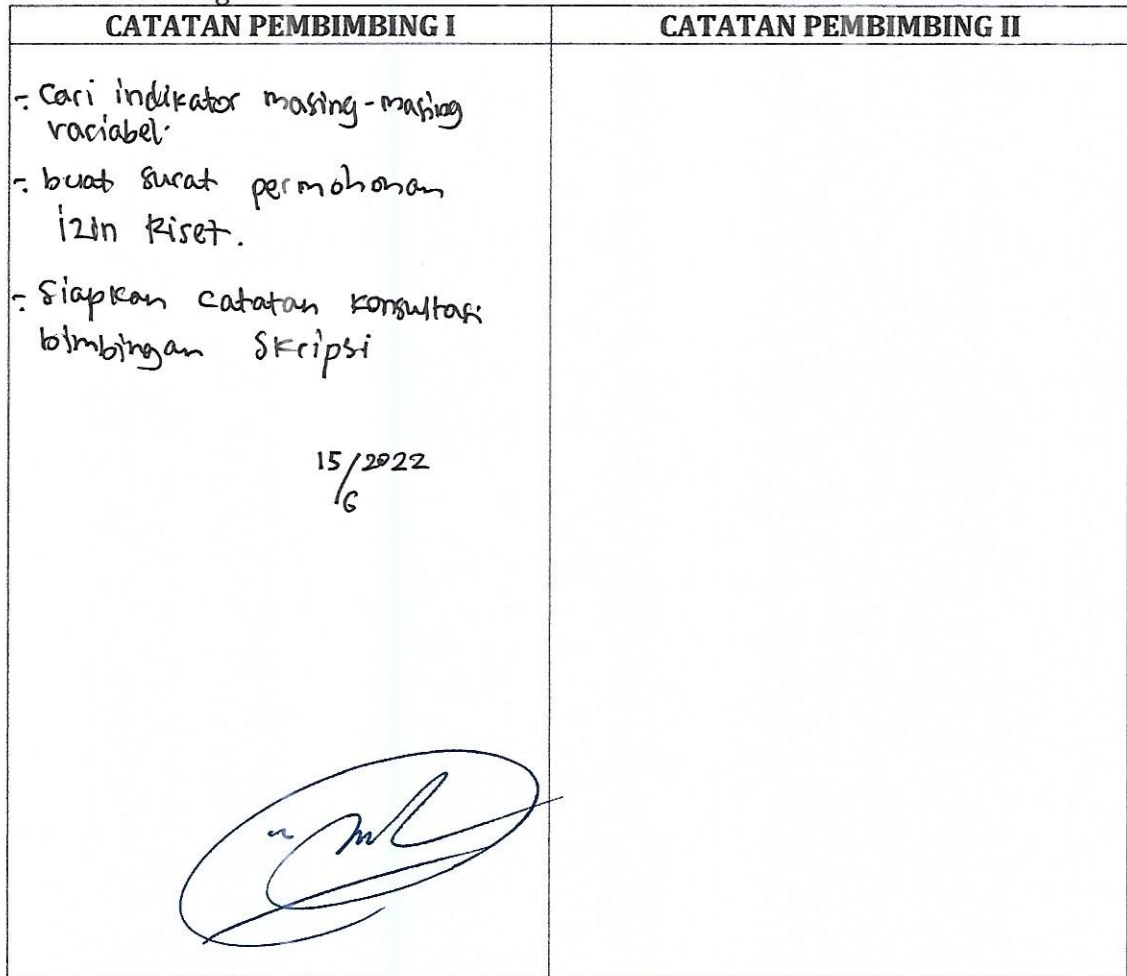 CATATAN PEMBIMBING I
CATATAN PEMBIMBING II
- Cari indikator masing-masing
variabel.
- buat surat permohonan
izin Riset.
- Siapkan catatan konsultasi
bimbingan Skripsi
15/6 2022